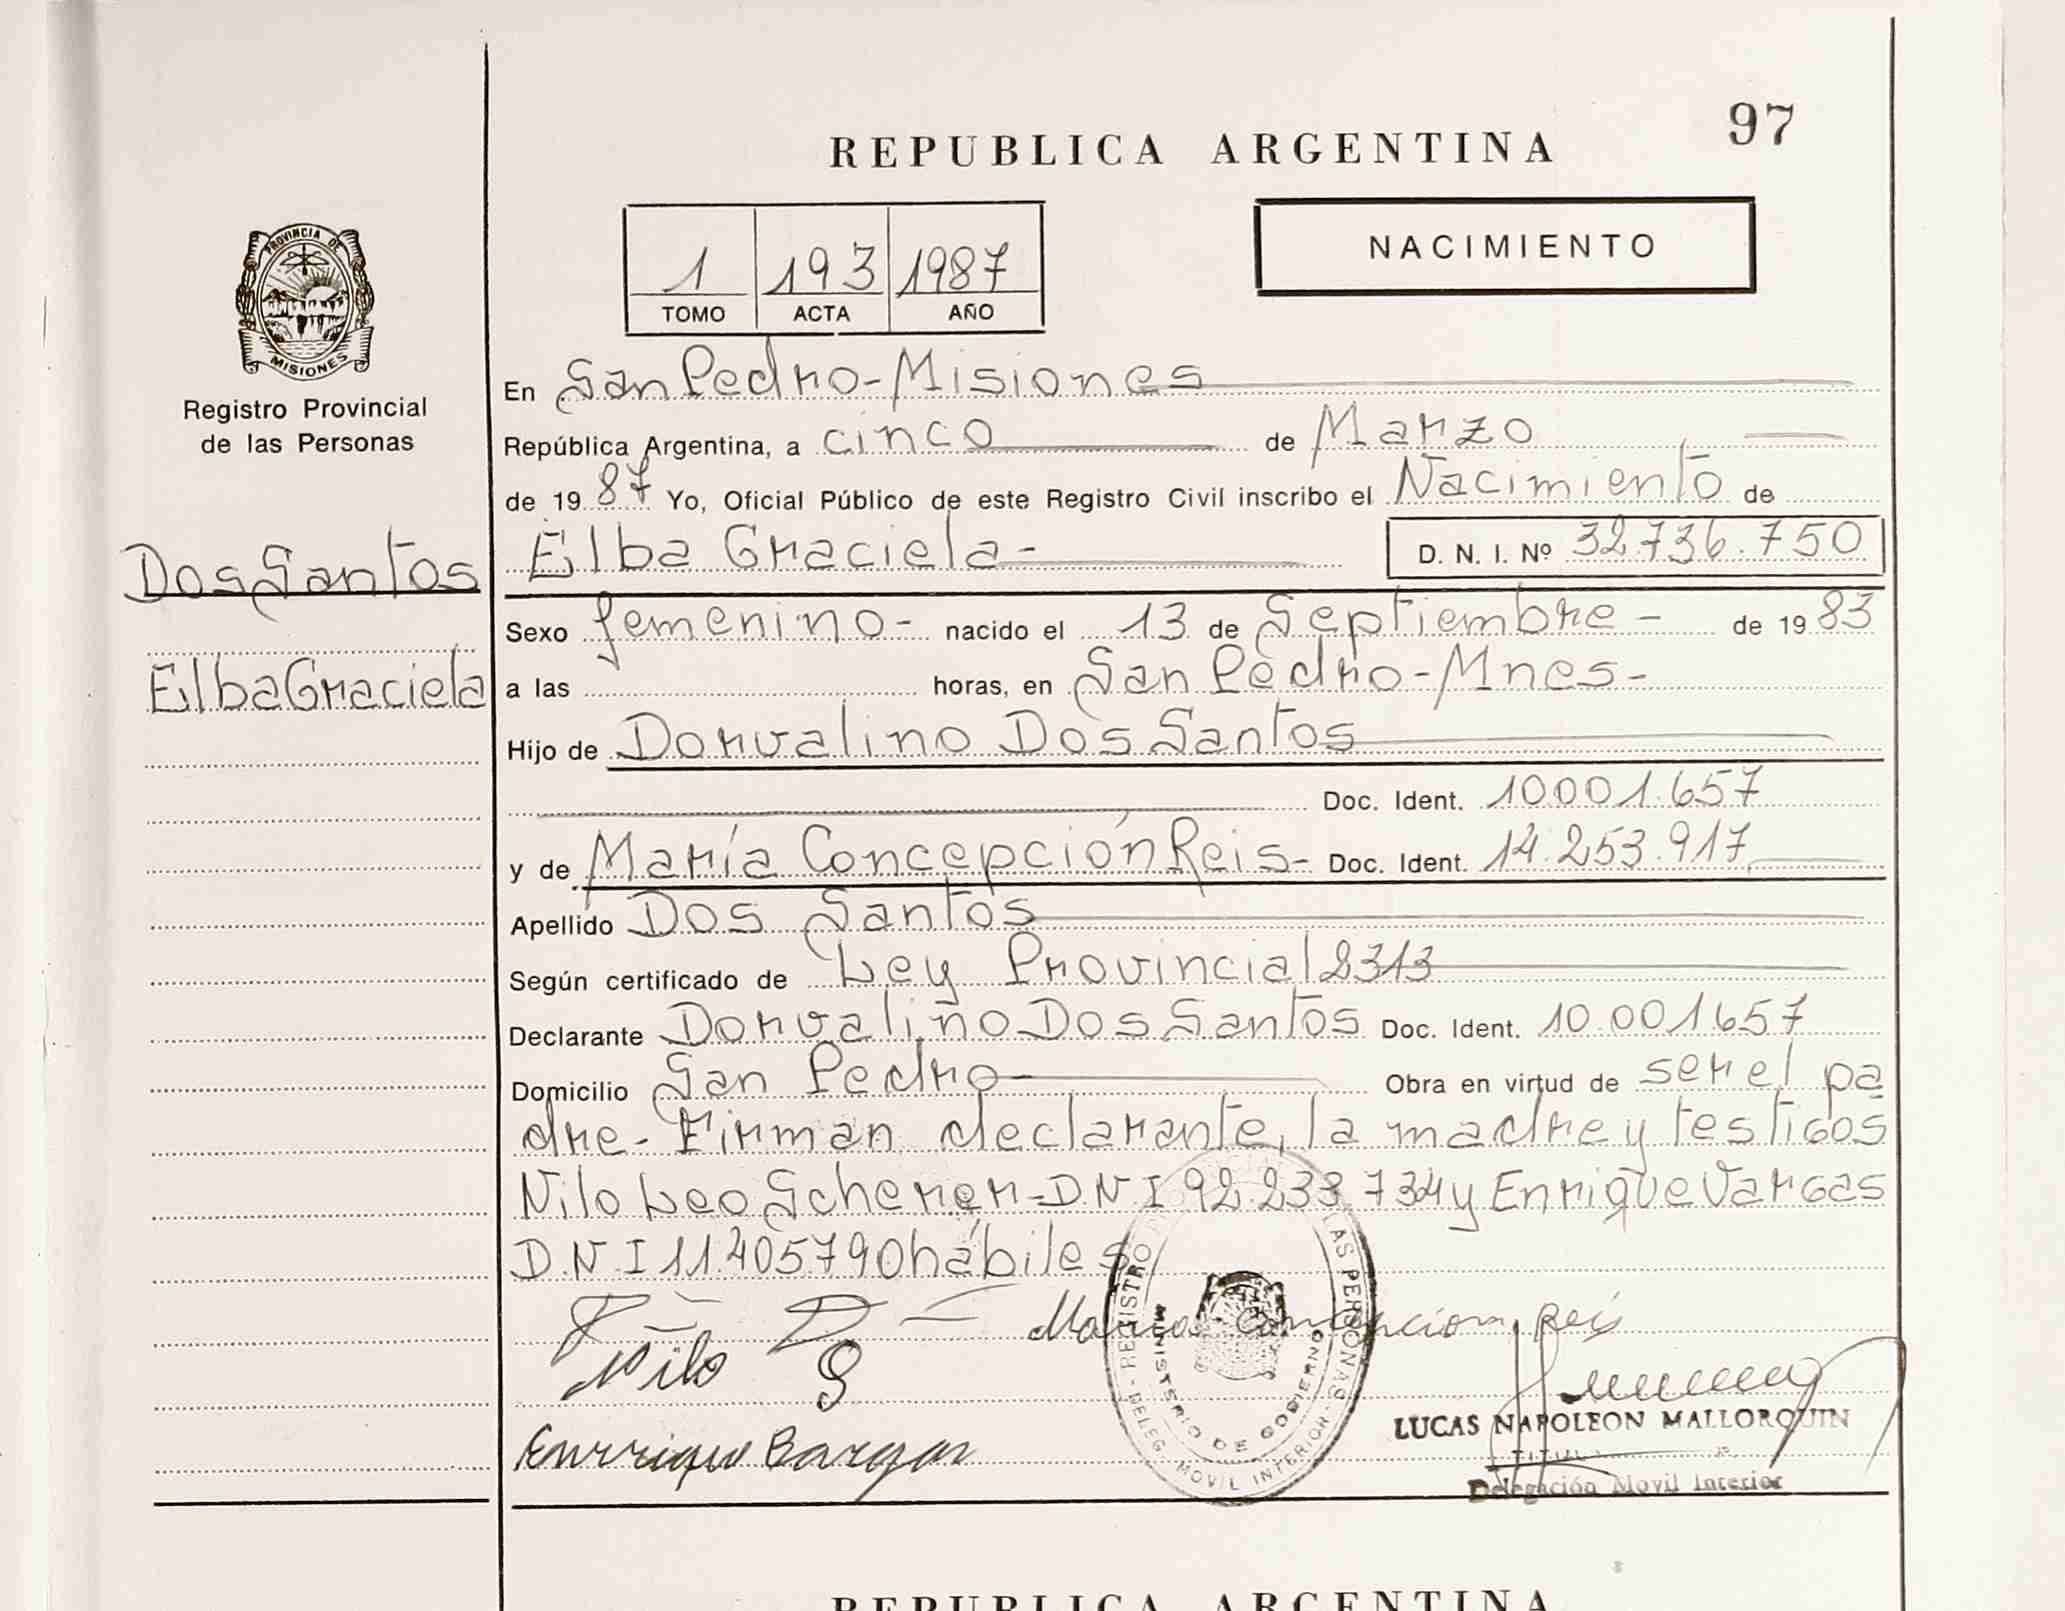 97
REPUBLICA ARGENTINA
1 193 1987
TOMO ACTA AÑO
NACIMIENTO
PROVINCIA DE
MISIONES
Registro Provincial
de las Personas
Dos Santos
Elba Graciela
En San Pedro-Misiones
República Argentina, a cinco de Marzo
de 1987 Yo, Oficial Público de este Registro Civil inscribo el Nacimiento de
Elba Graciela- D. N. I. Nº 32.736.750
Sexo femenino- nacido el 13 de Septiembre - de 1983
a las horas, en San Pedro-Mnes-
Hijo de Dorvalino Dos Santos
Doc. Ident. 10.001.657
y de María Concepción Reis- Doc. Ident. 14.253.917
Apellido Dos Santos
Según certificado de Ley Provincial 2313
Declarante Dorvalino Dos Santos Doc. Ident. 10.001657
Domicilio San Pedro Obra en virtud de ser el pa
dre- Firman declarante, la madre y testigos
Nilo Leo Scherer-D.N.I 92.233.734 y Enrique Vargas
D.N.I 11.405790 hábiles
Maria Concepcion Reis
Nilo S
Enrrique Bargas
DELEG. MOVIL INTERIOR - REGISTRO LAS PERSONAS
MINISTERIO DE GOBIERNO
LUCAS NAPOLEON MALLORQUIN
Delegación Movil Interior
REPUBLICA ARGENTINA